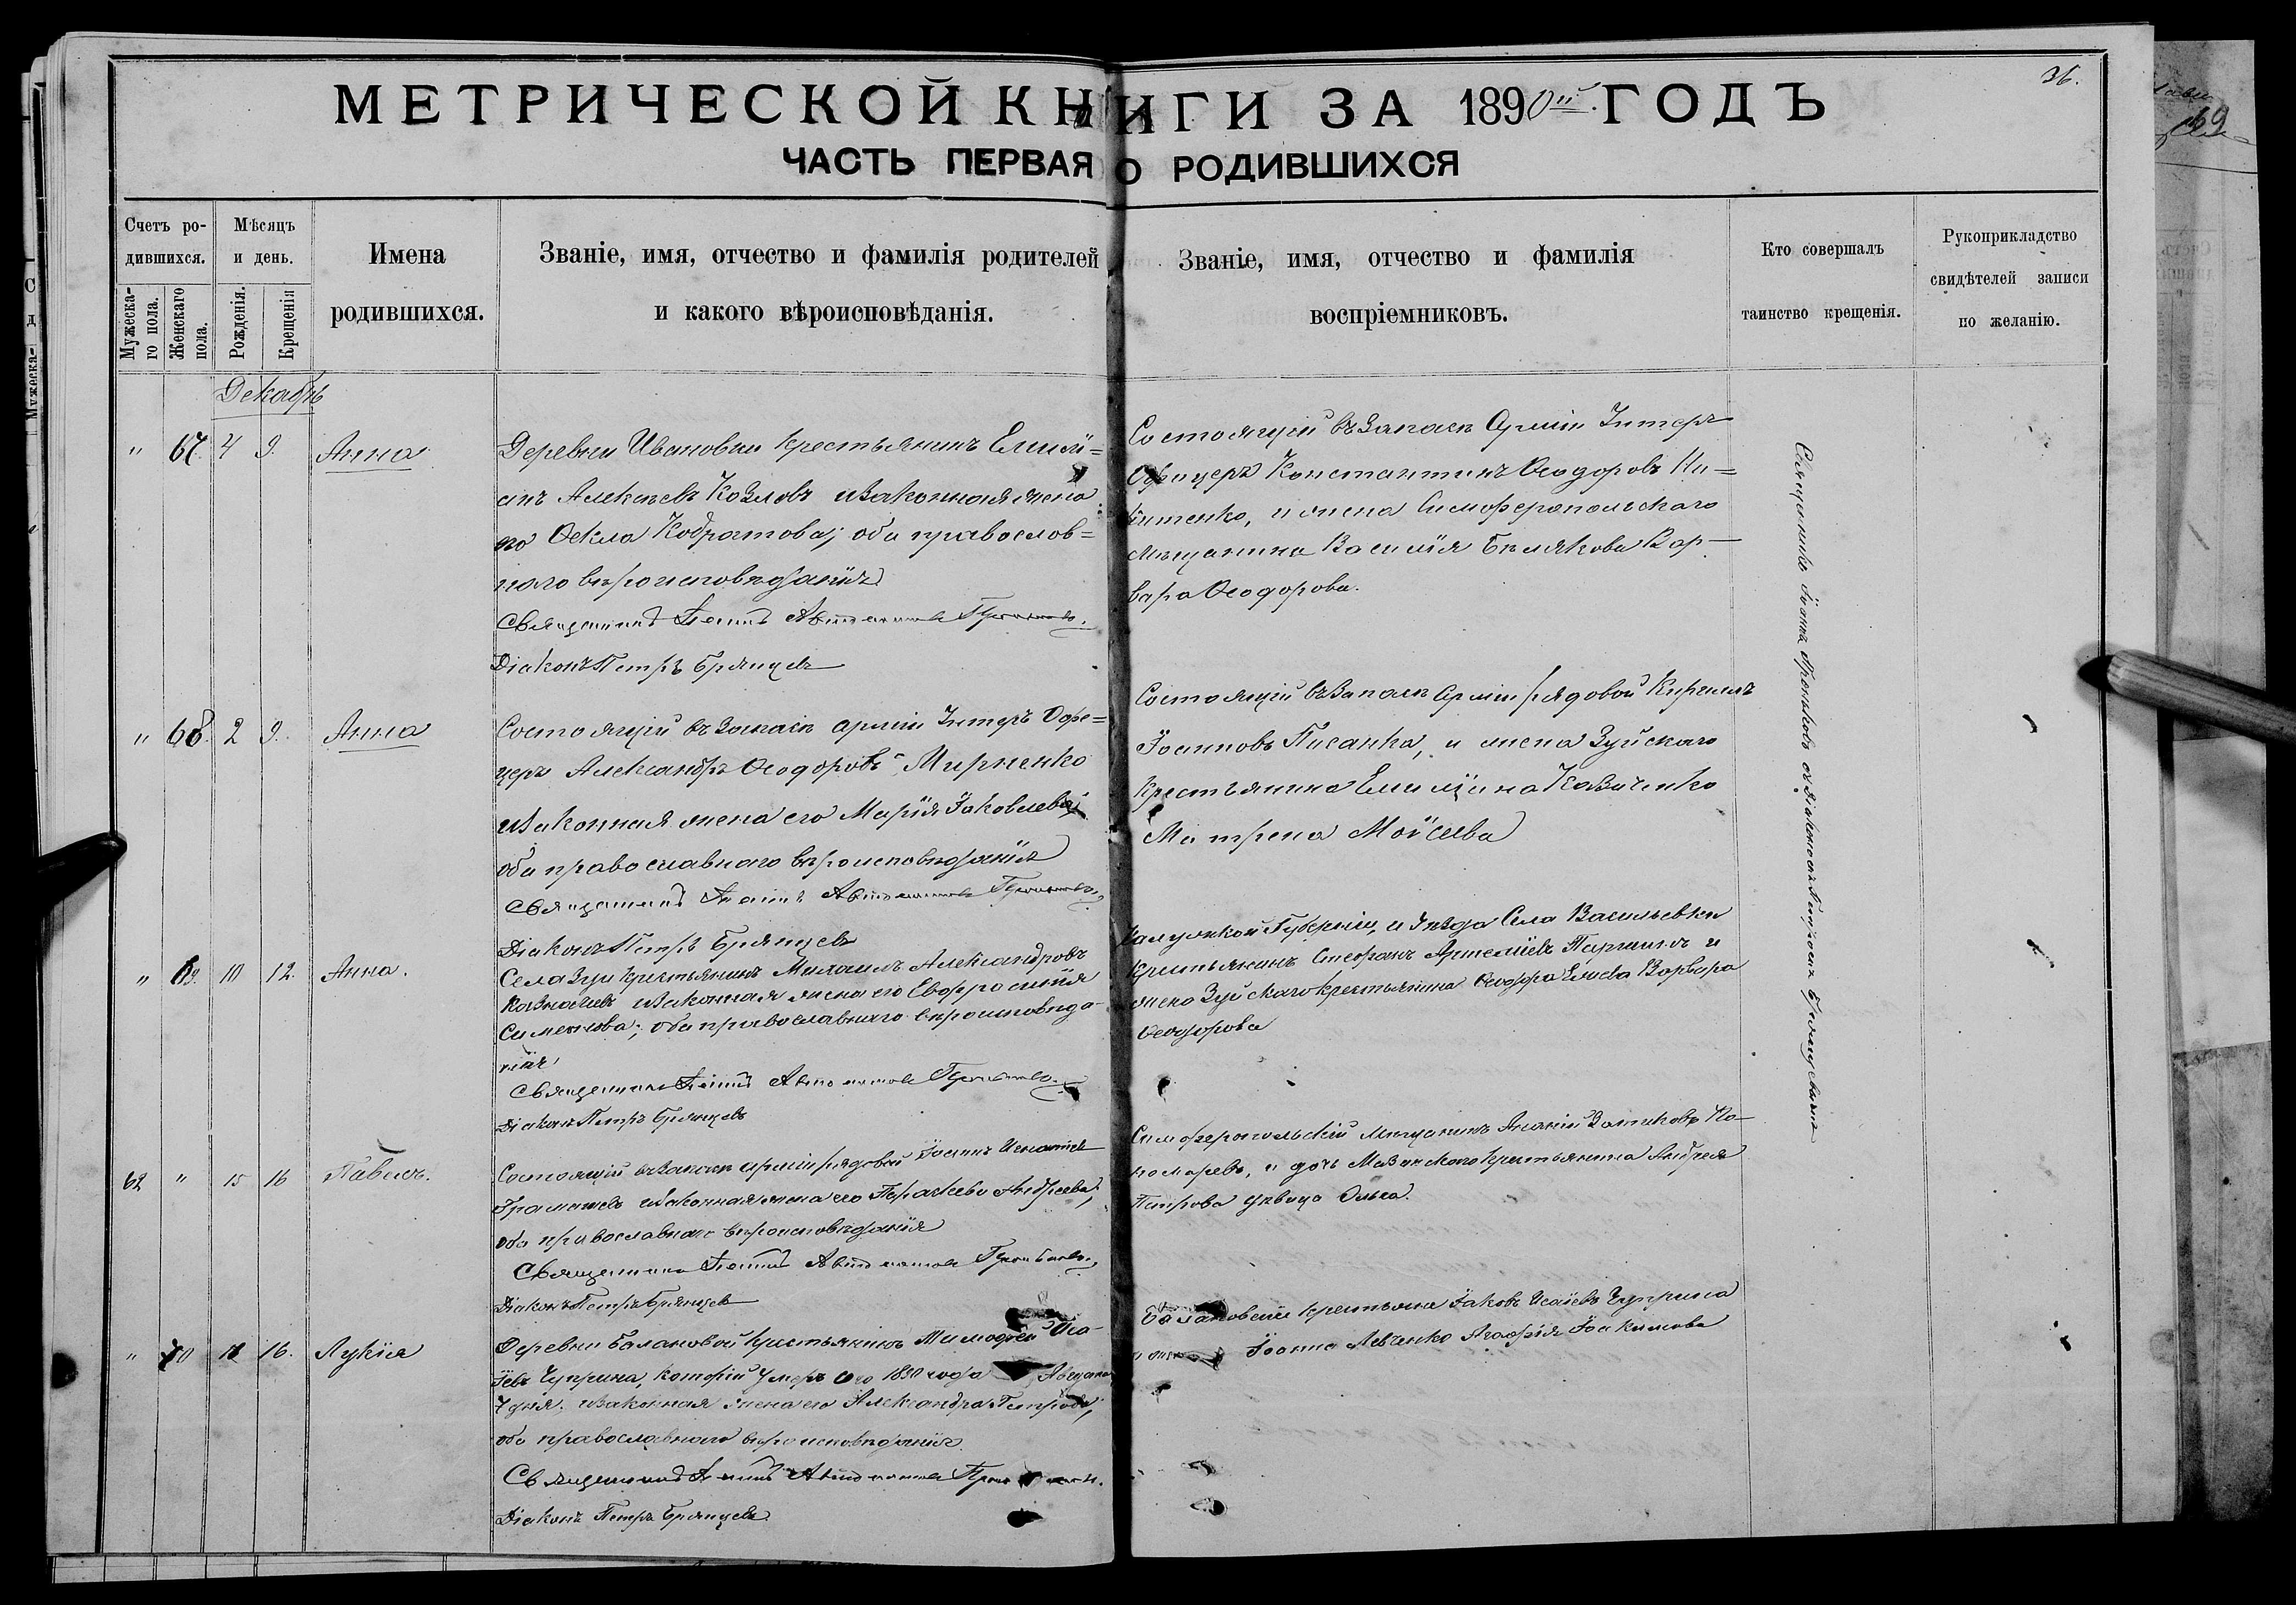 МЕТРИЧЕСКОЙ КНИГИ ЗА 1890й ГОДЪ
36.
ЧАСТЬ ПЕРВАЯ О РОДИВШИХСЯ
Счетъ ро-
дившихся.
Мужеска-
го пола.
Женскаго
пола.
Мѣсяцъ
и день.
Рожденія.
Крещенія
Имена
родившихся.
Званіе, имя, отчество и фамилія родителей
и какого вѣроисповѣданія.
Званіе, имя, отчество и фамилія
воспріемниковъ.
Кто совершалъ
таинство крещенія.
Рукоприкладство
свидѣтелей записи
по желанію.
Декабрь
" 67. 4 9. Анна
Деревни Ивановки крестьянинъ Емилі=
анъ Алексѣевъ Козловъ изаконная жена
его Ѳекла Кодратова; оба православ=
наго вѣроисповѣданія
Священникъ Іоаннъ
Діаконъ Петръ Брянцевъ
Состоящій въ Запасѣ Арміи Унтеръ
Офицеръ Константинъ Ѳеодоровъ Ни=
китенко, и жена Симферопольскаго
мѣщанина Василія Бѣлякова Вар-
вара Ѳеодорова.
" 68. 2 9. Анна
Состоящій въ Запасѣ арміи Унтеръ Офи=
церъ Александръ Ѳеодоровъ Мирненко
изаконная жена его Марія Іаковлева;
оба православнаго вѣроисповѣданія
Священникъ Іоаннъ
Діаконъ Петръ Брянцевъ
Состоящій въ Запасѣ Арміи рядовой Кириллъ
Іоанновъ Писанка, и жена Зуйскаго
крестьянина Емиліана Казаченко
Матрена Моѵсеева
" 69. 10 12. Анна.
Села Зуи крестьянинъ Михаилъ Александровъ
Казначеевъ изаконная жена его Евфросинія
Симеонова; оба православнаго вѣроисповѣда-
нія
Священникъ Іоаннъ
Діаконъ Петръ Брянцевъ
Калужской Губерніи, и Уѣзда Села Васильевки
крестьянинъ Стефанъ Артеміевъ Паршинъ и
жена Зуйскаго крестьянина Варвара
Ѳеодорова
62 " 15 16 Павелъ.
Состоящій въ Запасѣ арміи рядовой Іоаннъ Игнатіевъ
изаконная жена его Параскева Андреева;
оба православнаго вѣроисповѣданія
Священникъ Іоаннъ
Діаконъ Петръ Брянцевъ
Симферопольскій мѣщанинъ По-
номаревъ, и дочь Мазанскаго крестьянина Андрея
Петрова дѣвица Ольга.
" 70 16. Лукія
Деревни Балановой крестьянинъ Тимофей Иса-
іевъ Чуприна, который умеръ сего 1890 года Августа
7 дня. изаконная жена его Александра Петрова;
оба православнаго вѣроисповѣданія.
Священникъ Іоаннъ
Діаконъ Петръ Брянцевъ
Балановскіе крестьяне Іаковъ Исаіевъ Чуприна
и жена Іоанна Левченко Агафія Іоакимова
Священникъ Іоаннъ съ Діакономъ Петромъ Брянцевымъ